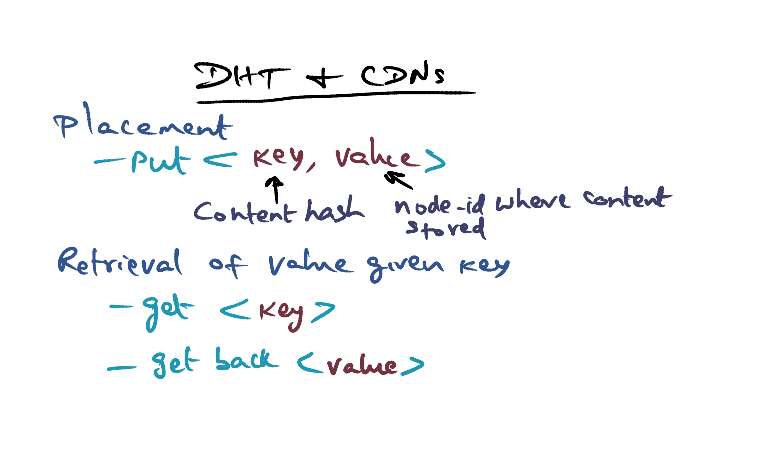 DHT + CDNs
Placement
- Put < key, value >
Content hash
node-id where content
stored
Retrieval of value given key
- get < key >
- get back < value >